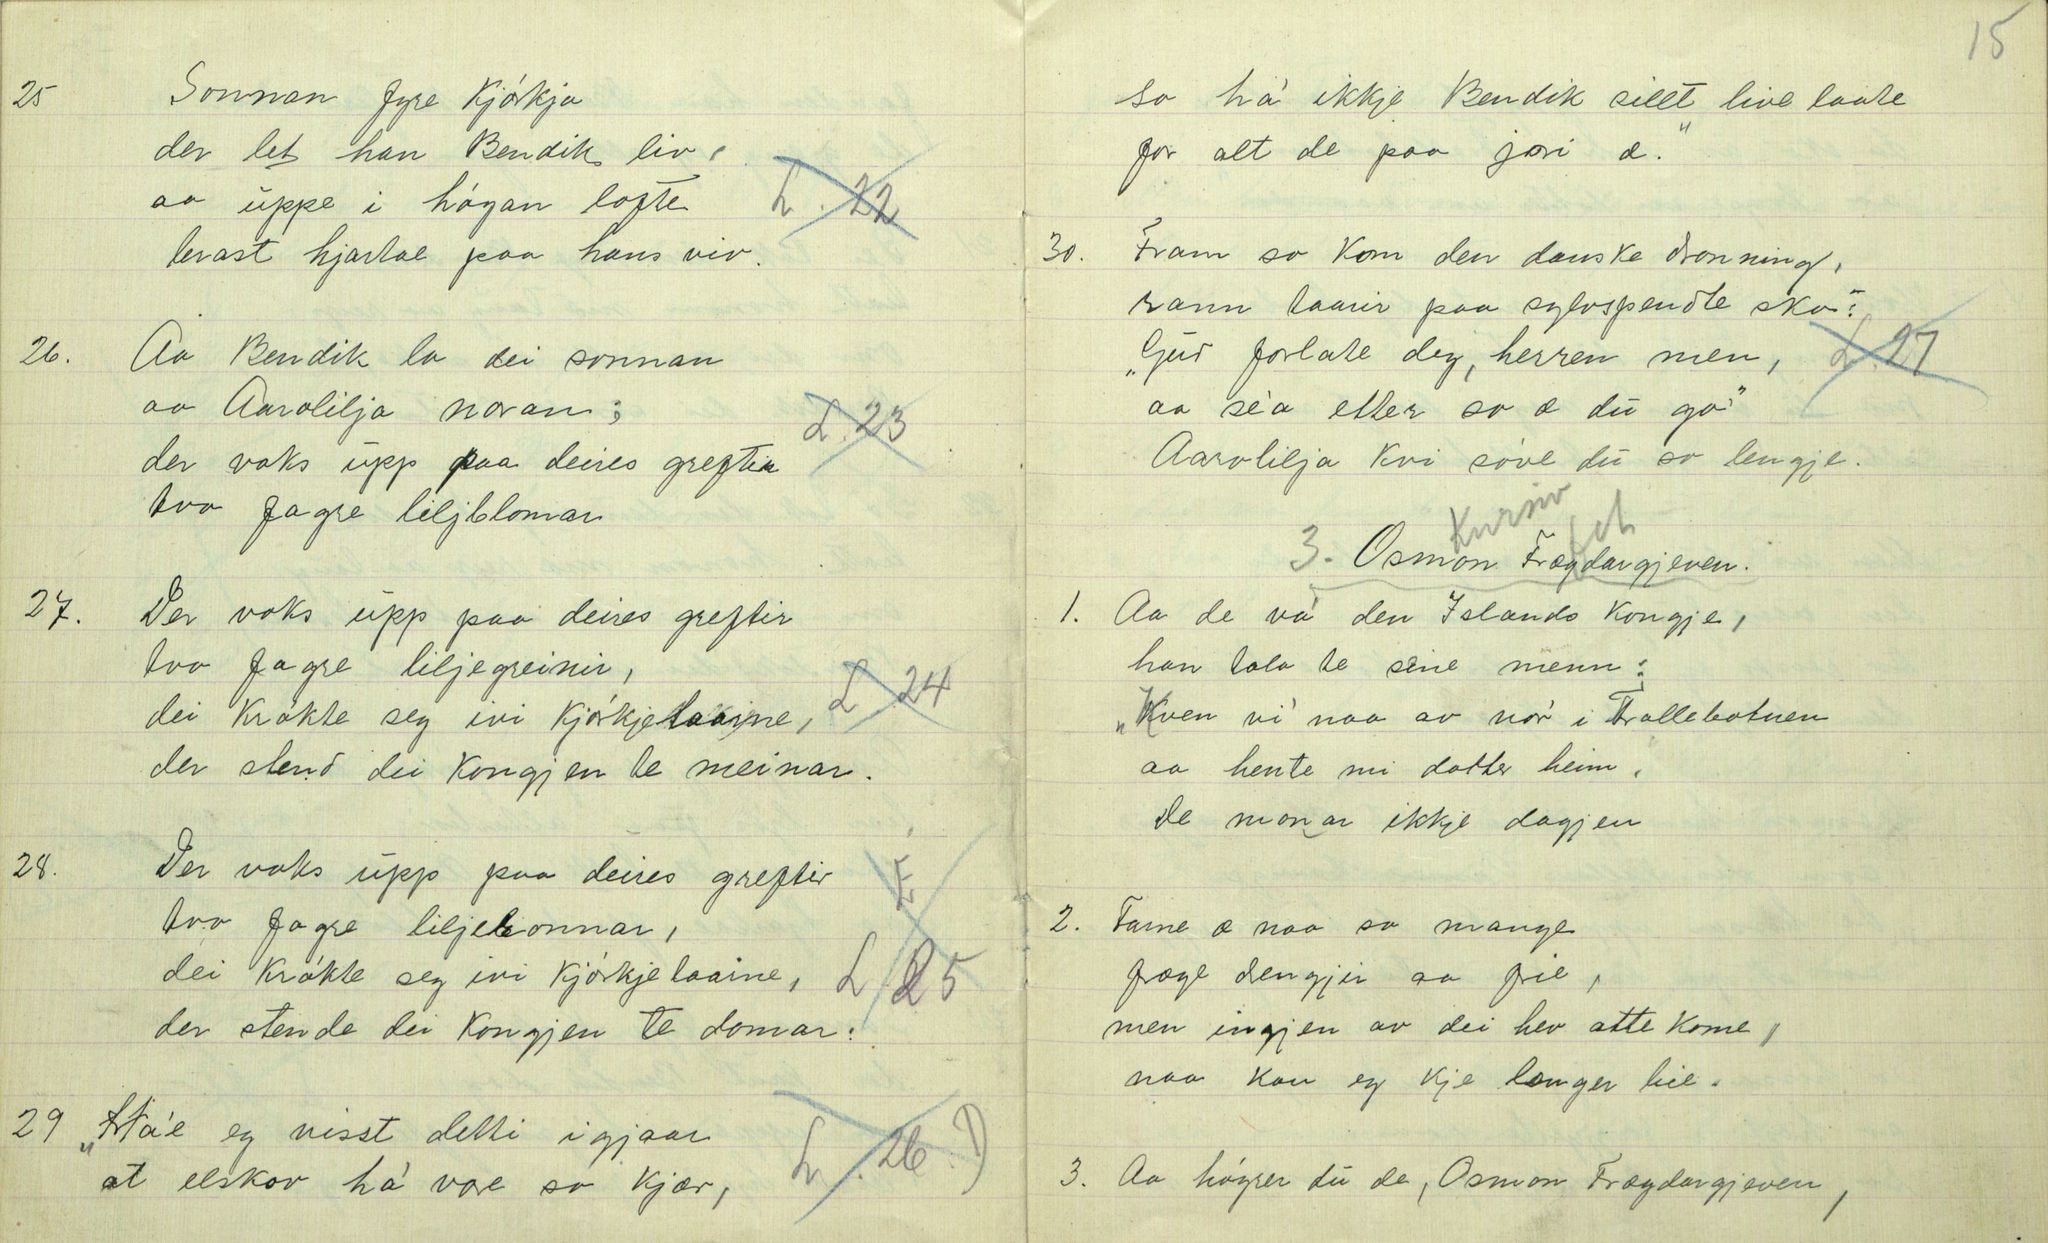 25 Sonnan fyre Kjórkja
der let han Bendik liv,
aa üppe i hógan lofte
brast hjartae paa hans viv.
L. 22
26. Aa Bendik la dei sonnan
aa Aarolilja noran;
der voks üpp paa deires greftir
tvo fagre liljblomar
L. 23
27. Der voks üpp paa deires greftir
tvo fagre liljegreinir,
dei krókte seg ivi Kjórkjetaarne,
der stend dei Kongjen te meinar.
L 24
28. Der voks üpp paa deires greftir
tvo fagre liljekonnar,
dei krókte seg ivi Kjórkjetaarne,
der stende dei Kongjen te domar:
L 25
29 „Há'e eg visst detti igjaar
at elskov há' vore so kjær,
L. 26. 1)
15
so há' ikkje Bendik sillt live laate
for alt de paa jori æ."
30. Fram so kom den danske dronning,
rann taarir paa sylvspendte sko:
„Güd forlate deg, herren men,
aa sèa etter so æ dü go"
Aarolilja kvi sóve dü so lengje.
L. 27
Kursiv fet
3. Osmon Frægdargjeven.
1. Aa de vá' den Islands Kongje,
han tala te sine menn:
„Kven vi' naa av nór' i Trollebotnen
aa hente mi dotter heim.
De monar ikkje dagjen
2. Farne æ naa so mange
fræge drengjir aa frie,
men ingjen av dei hev atte kome,
naa kan eg kje lenger bie.
3. Aa hóyrer dü de, Osmon Frægdargjeven,